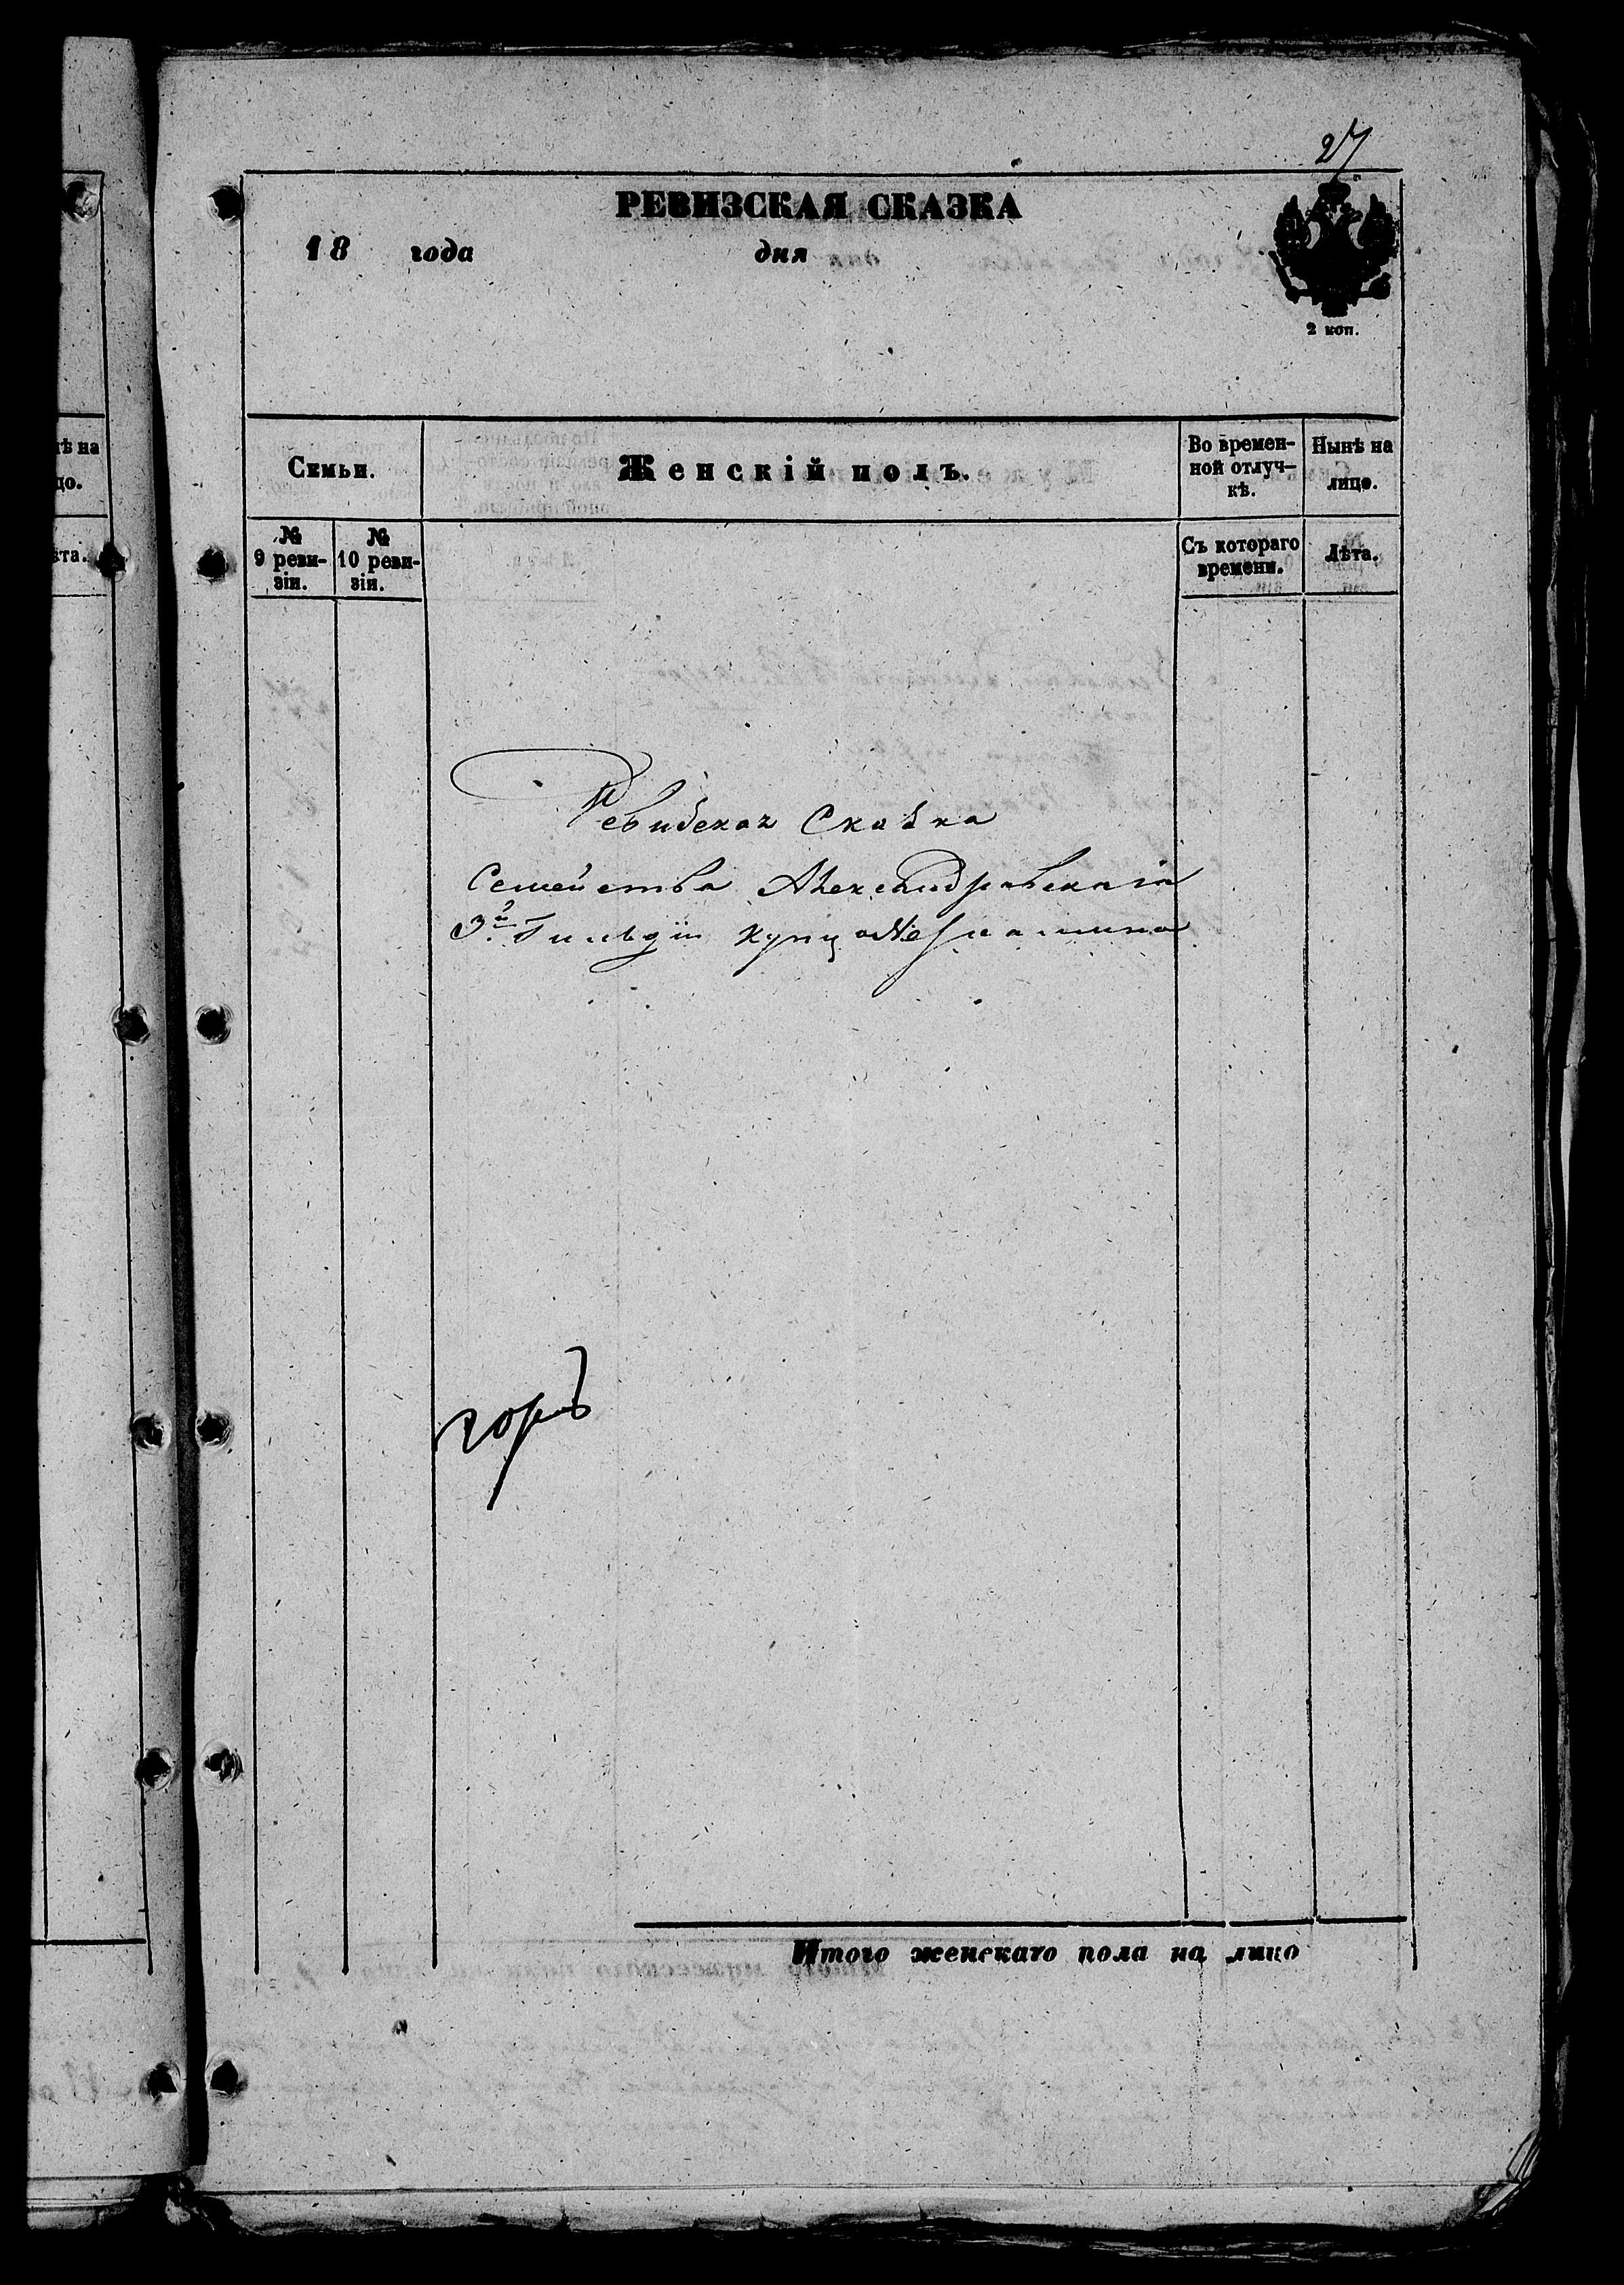 27
РЕВИЗСКАЯ СКАЗКА
18 года дня
2 коп.
Семьи.
Женскій полъ.
Во времен-
ной отлуч-
кѣ.
Нынѣ на
лицо.
№
9 реви-
зіи.
№
10 реви-
зіи.
Съ котораго
времени.
Лѣта.
Ревизская Сказка
Семейства Александровскаго
3й Гильдіи Купца
Итого женскаго пола на лицо
ѣ на
цо.
ѣта.